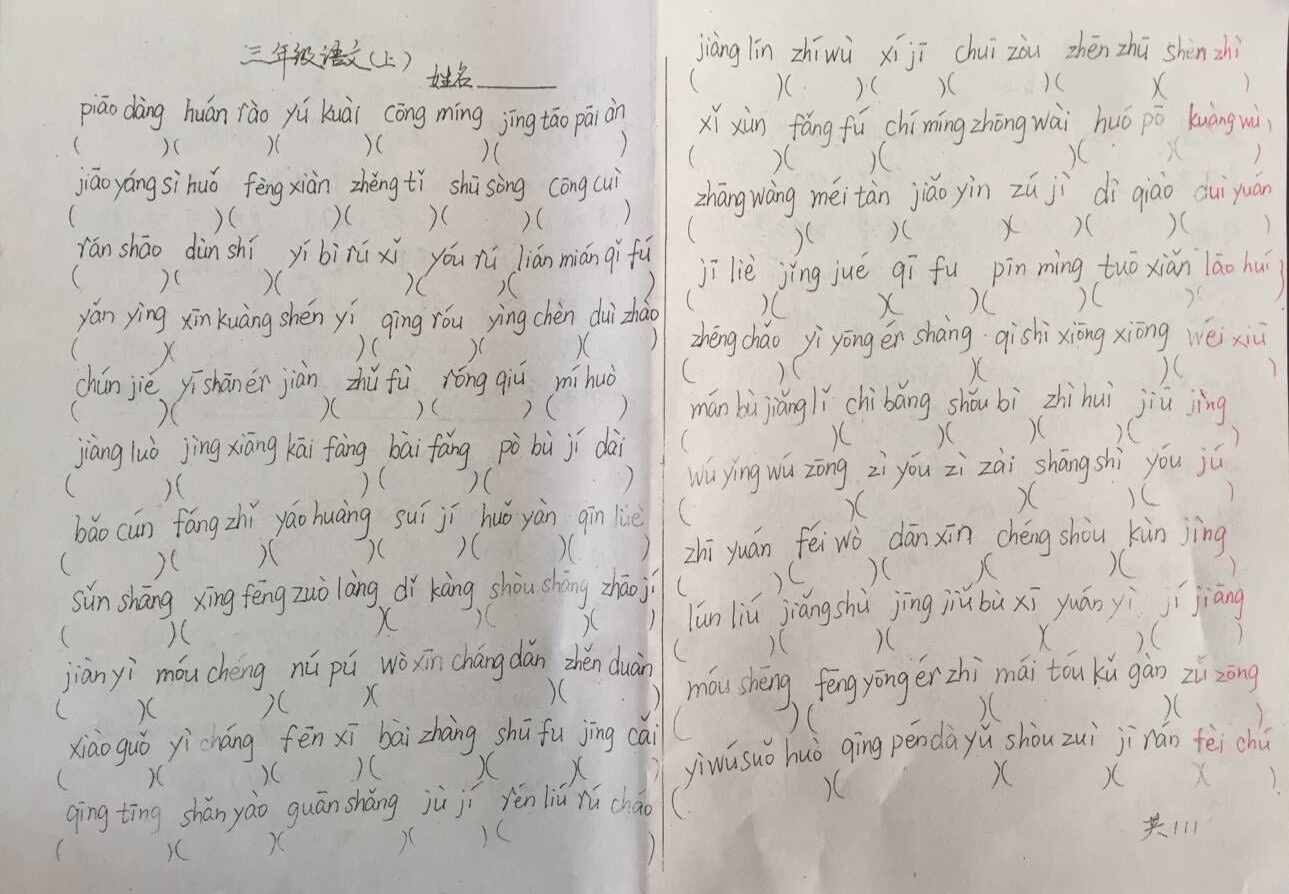 三年级语文(上)
姓名______
piāo dàng huán rào yú kuài cōng míng jīng tāo pāi àn
( )( )( )( )( )
jiāo yáng sì huǒ fèng xiàn zhěng tǐ shū sòng cōng cuì
( )( )( )( )( )
rán shāo dùn shí yí bì rú xǐ yóu rú lián mián qǐ fú
( )( )( )( )( )
yǎn yìng xīn kuàng shén yí qīng róu yìng chèn duì zhào
( )( )( )( )( )
chún jié yī shān ér jiàn zhǔ fù róng qiú mí huò
( )( )( )( )( )
jiàng luò jìng xiāng kāi fàng bài fǎng pò bù jí dài
( )( )( )( )
bǎo cún fáng zhǐ yáo huàng suí jí huǒ yàn qīn lüè
( )( )( )( )( )( )
sǔn shāng xīng fēng zuò làng dǐ kàng shòu shāng zhāo jí
( )( )( )( )( )
jiàn yì móu chéng nú pú wò xīn cháng dǎn zhěn duàn
( )( )( )( )( )
xiào guǒ yì cháng fēn xī bài zhàng shū fu jīng cǎi
( )( )( )( )( )( )
qīng tīng shǎn yào guān shǎng jù jí rén liú rú cháo
( )( )( )( )( )
jiàng lín zhí wù xí jī chuī zòu zhēn zhū shèn zhì
( )( )( )( )( )( )
xǐ xùn fǎng fú chí míng zhōng wài huó pō kuàng wù
( )( )( )( )( )
zhāng wàng méi tàn jiǎo yìn zú jì dì qiào duì yuán
( )( )( )( )( )( )
jī liè jǐng jué qī fu pīn mìng tuō xiǎn lāo huí
( )( )( )( )( )( )
zhēng chǎo yì yōng ér shàng qì shì xiōng xiōng wéi xiū
( )( )( )( )
mán bù jiǎng lǐ chì bǎng shǒu bì zhì huì jiū jìng
( )( )( )( )( )
wú yǐng wú zōng zì yóu zì zài shāng shì yóu jú
( )( )( )( )
zhī yuán féi wò dān xīn chéng shòu kùn jìng
( )( )( )( )( )
lún liú jiǎng shù jīng jiǔ bù xī yuán yì jí jiāng
( )( )( )( )( )
móu shēng fēng yōng ér zhì mái tóu kǔ gàn zǔ zōng
( )( )( )( )
yì wú suǒ huò qīng pén dà yǔ shòu zuì jì rán fèi chú
( )( )( )( )( )
共111